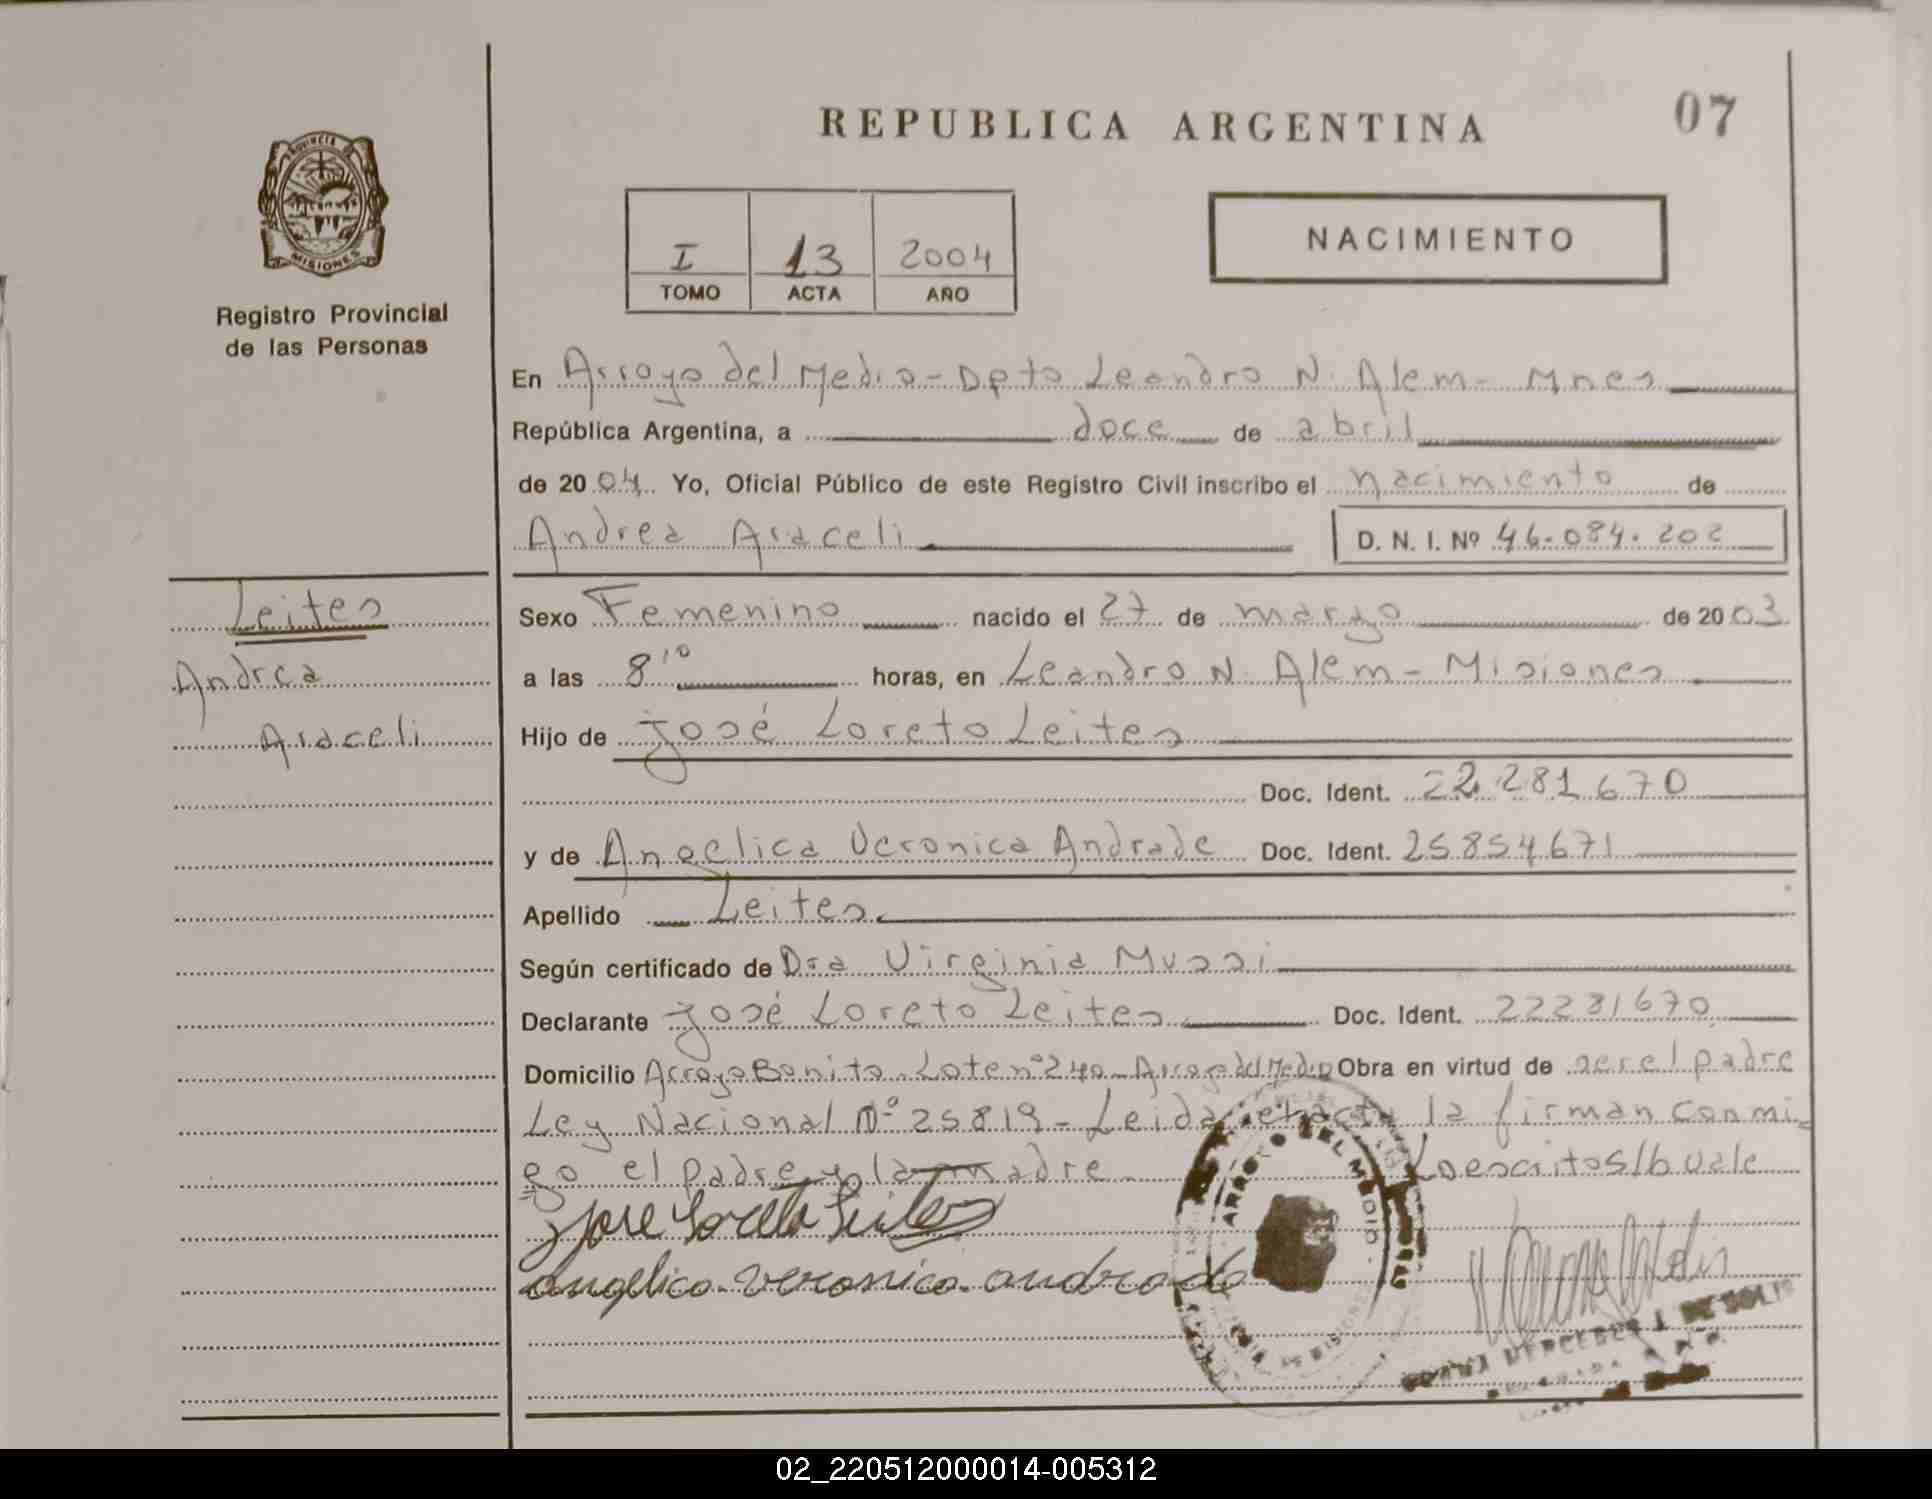 REPUBLICA ARGENTINA
07
PROVINCIA DE
MISIONES
Registro Provincial
de las Personas
I 13 2004
TOMO ACTA AÑO
NACIMIENTO
En Arroyo del Medio - Dpto Leandro N. Alem - Mnes
República Argentina, a doce de abril
de 2004 Yo, Oficial Público de este Registro Civil inscribo el nacimiento de
Andrea Araceli D. N. I. Nº 46.084.202
Leites
Andrea
Araceli
Sexo Femenino nacido el 27 de marzo de 2003
a las 8 10 horas, en Leandro N. Alem - Misiones
Hijo de José Loreto Leites
Doc. Ident. 22 281 670
y de Angelica Veronica Andrade Doc. Ident. 25854671
Apellido Leites
Según certificado de Dra Virginia Mussi
Declarante José Loreto Leites Doc. Ident. 22281670
Domicilio Arroyo Bonito - Lote nº 240 - Arroyo del Medio Obra en virtud de ser el padre
Ley Nacional Nº 25819 - Leida el acta la firman conmi
go el padre y la madre - Lo escrito s/b vale
Jose Loreto Leites
Angelica Veronica Andrade
ARROYO DEL MEDIO
DE MISIONES
MERCEDES J. DE SOLIS
02_220512000014-005312